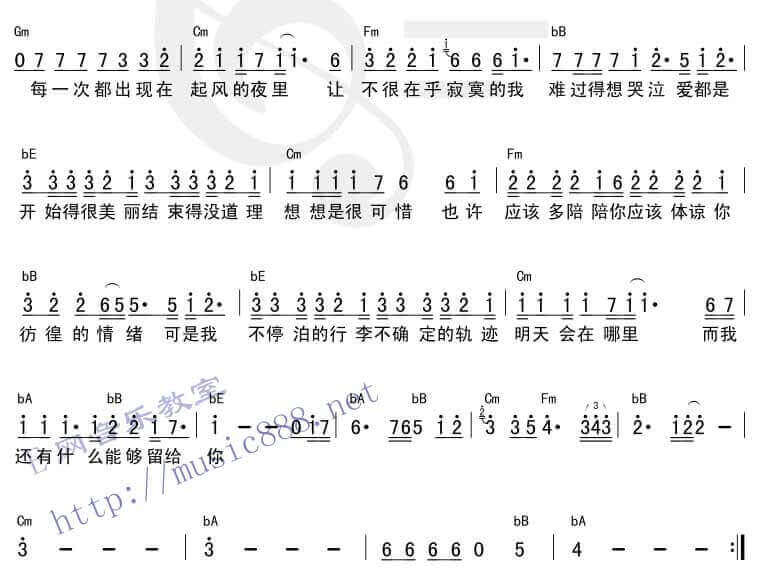 Gm Cm Fm bB
0 7 7 7 7 3 3 2 | 2 1 1 7 1 1· 6 | 3 2 2 1 6 6 6 1· | 7 7 7 7 1 2· 5 1 2· |
每一次都出现在 起风的夜里 让 不很在乎寂寞的我 难过得想哭泣 爱都是
bE Cm Fm
3 3 3 3 2 1 3 3 3 3 2 1 | 1 1 1 1 7 6 6 1 | 2 2 2 2 1 6 2 2 2 2 1 |
开始得很美丽结束得没道理 想想是很可惜 也许 应该多陪陪你应该体谅你
bB bE Cm
3 2 2 6 5 5 5· 5 1 2· | 3 3 3 3 2 1 3 3 3 3 2 1 | 1 1 1 1 7 1 1· 6 7 |
彷徨的情绪 可是我 不停泊的行李不确定的轨迹 明天会在哪里 而我
bA bB bE bA bB Cm Fm bB
1 1 1· 1 2 2 1 7· | 1 - - 0 1 7 | 6· 7 6 5 1 2 | 2 3 3 5 4· 3 4 3 | 2· 1 2 2 - |
3
还有什么能够留给 你
E网音乐教室
http://music888.net
Cm bA bB bA
3 - - - | 3 - - - | 6 6 6 6 0 5 | 4 - - - :||